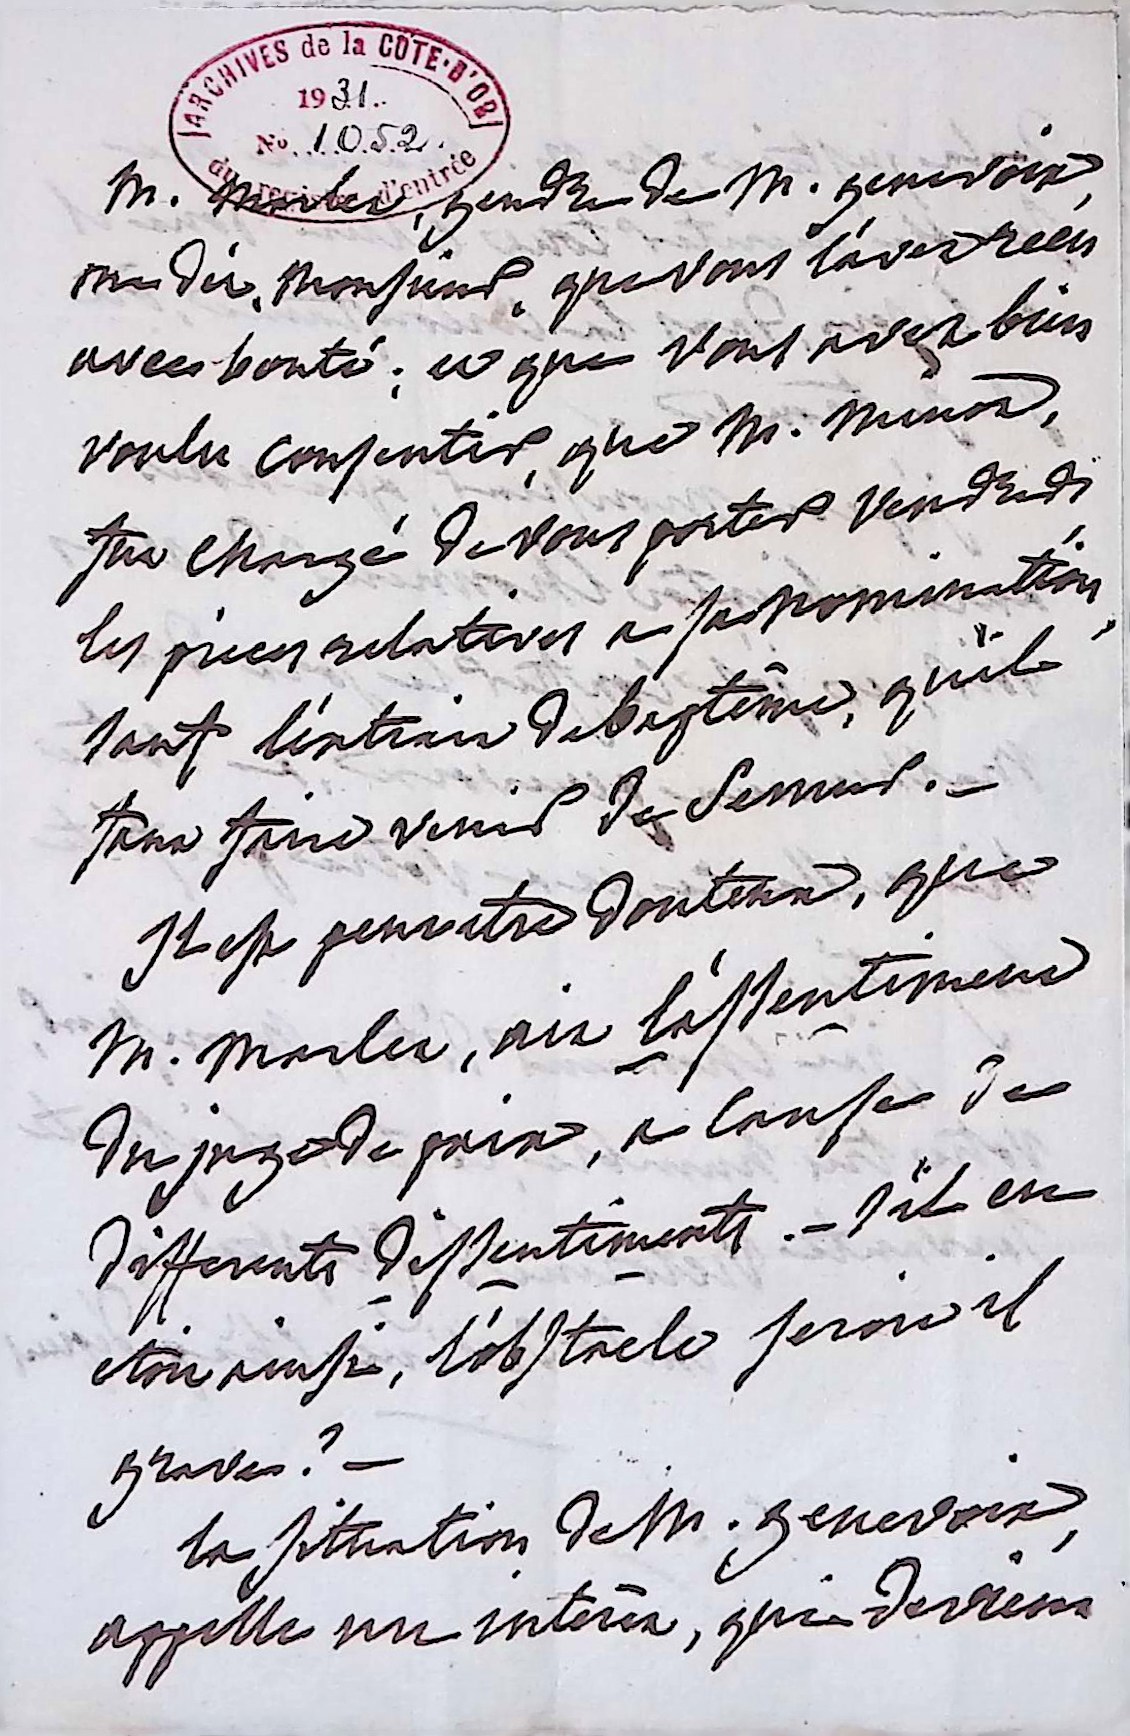 ARCHIVES de la COTE-D'OR
1931..
No. 1052.
du registre d'entrée
M. Marlet, gendre de M. genevoix,
me dit, Monsieur, que vous l'avez reçu
avec bonté; et que vous avez bien
voulu consentir, que M. Minot,
fut chargé de vous porter vendredi
les pieces relatives a sa nomination,
sauf l'extrait de baptême, qu'il
faut faire venir de Semur. —
Il est peut etre douteux, que
M. Marlet, ait l'assentiment
du juge de paix, a cause de
differents dissentiments. — s'il en
etoit ainsi, l'obstacle seroit il
grave? —
la situation de M. genevoix,
appelle un intérêt, qui devient